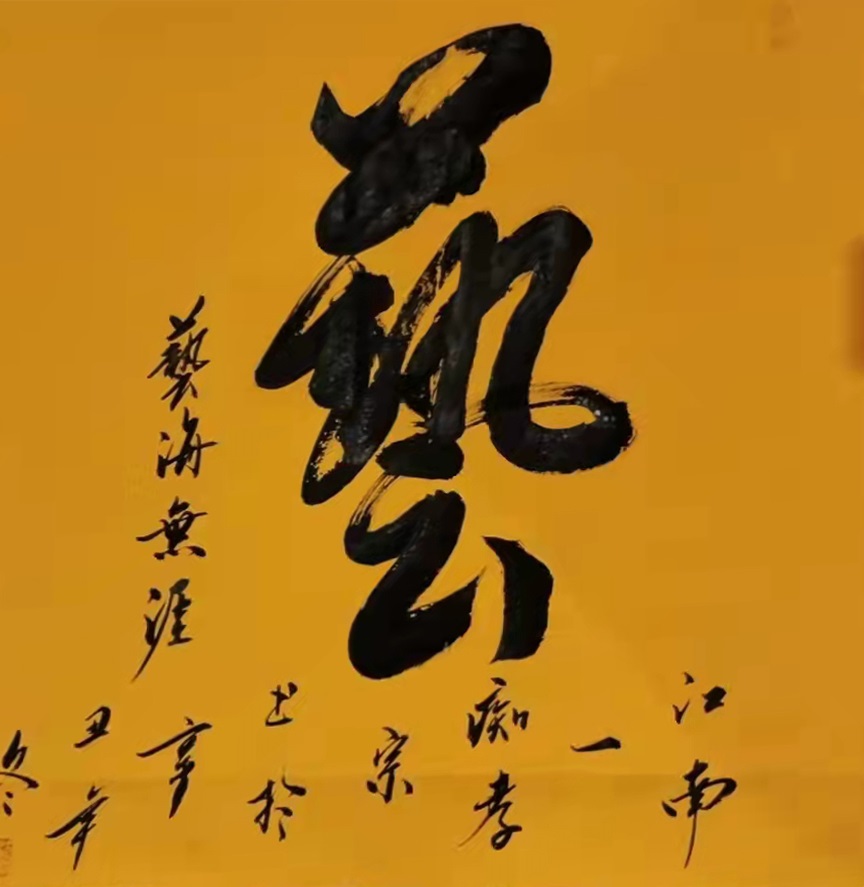 藝
藝海無涯
江南
一
痴孝
宗
书於
辛
丑年
冬